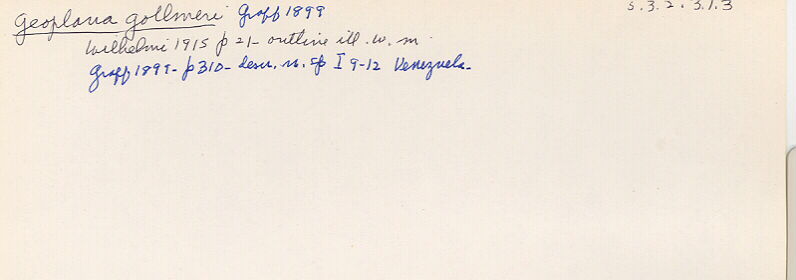 Geoplana gollmeri Graff 1899
S. 3. 2. 3. 1. 3
Wilhelmi 1915 p 21- outline ill. w. m.
Graff 1899- p 310- descr. n. sp I 9-12 Venezuela-